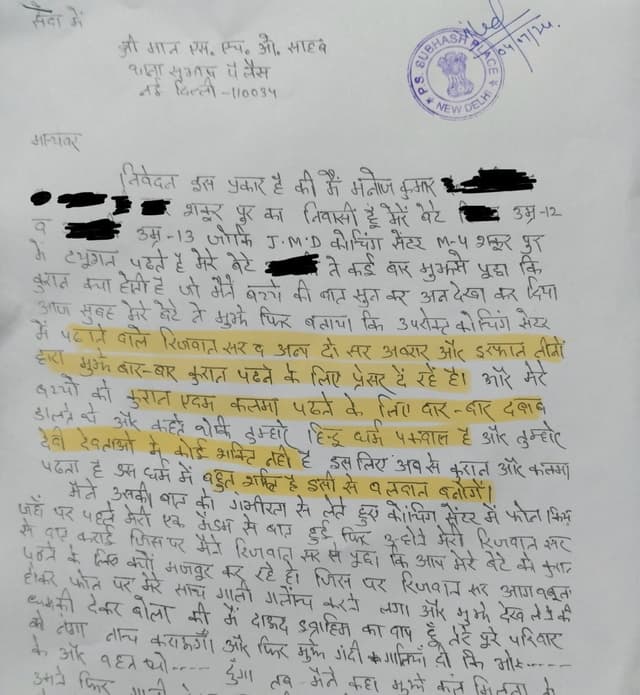 सेवा में
श्री मान एस. एच. ओ. साहब
थाना सुभाष पैलेस
नई दिल्ली-110034
P.S. SUBHASH PLACE
NEW DELHI
04/7/24
मान्यवर
निवेदन इस प्रकार है की मैं मनोज कुमार
शकूर पुर का निवासी हूँ मेरे बेटे उम्र-12
व उम्र-13 जोकि J.M.D कोचिंग सेंटर M-4 शकूर पुर
में ट्यूशन पढते है मेरे बेटे ने कई बार मुझसे पूछा कि
कुरान क्या होती है जो मैने बच्चे की बात सुन कर अनदेखा कर दिया
आज सुबह मेरे बेटे ने मुझे फिर बताया कि उपरोक्त कोचिंग सेंटर
में पढाने वाले रिजवान सर व अन्य दो सर अबरार और इरफान तीनों
द्वारा मुझे बार-बार कुरान पढने के लिए प्रेसर दें रहे है। और मेरे
बच्चों को कुरान एवम कलमा पढने के लिए बार-बार दबाव
डालते थे और कहते थेकि तुम्हारे हिन्दू धर्म बकवास है और तुम्हारे
देवी देवताओं में कोई शक्ति नही है इस लिए अब से कुरान और कलमा
पढना है इस धर्म में बहुत शक्ति है इसी से बलवान बनोगें।
मैने उसकी बात को गंभीरता से लेते हुए कोचिंग सेंटर में फोन किया
जहाँ पर पहले मेरी एक मैडम से बात हुई फिर उन्होने मेरी रिजवान सर
से बात कराई जिस पर मैने रिजवान सर से पूछा कि आप मेरे बेटे को कुरान
पढने के लिए क्यों मजबूर कर रहे हो। जिस पर रिजवान सर आग बबूला
होकर फोन पर मेरे साथ गाली गलोच करने लगा और मुझे देख लेने की
धमकी देकर बोला की मैं दाऊद इब्राहिम का बाप हूँ तेरे पूरे परिवार
को नंगा नाच कराऊगाँ और फिर मुझे गंदी गालियाँ दी कि
के और बहन चो..... दूंगा तब मैने कहा मुझे
उसने फिर